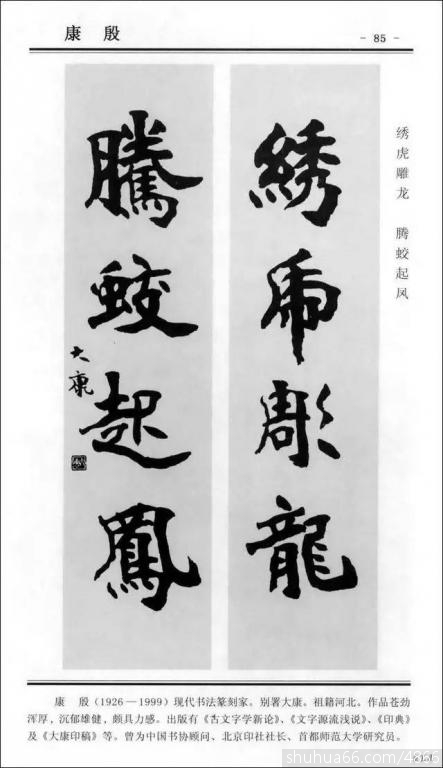 康 殷
- 85 -
绣虎雕龙 腾蛟起凤
繡虎彫龍
騰蛟起鳳
大康
康 殷（1926—1999）现代书法篆刻家。别署大康。祖籍河北。作品苍劲
浑厚，沉郁雄健，颇具力感。出版有《古文字学新论》、《文字源流浅说》、《印典》
及《大康印稿》等。曾为中国书协顾问、北京印社社长、首都师范大学研究员。